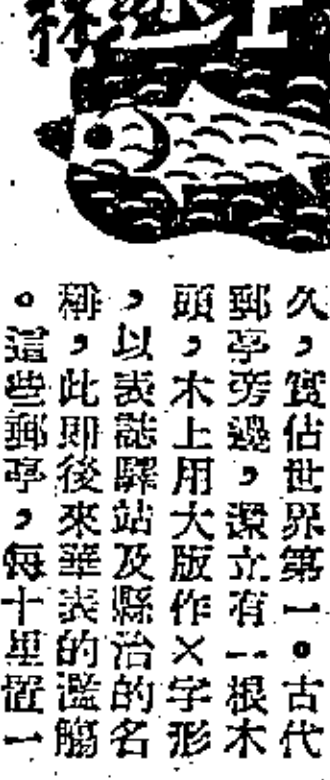 久，實佔世界第一。古代
郵亭旁邊，還立有一根木
頭，木上用大版作×字形
，以表誌驛站及縣治的名
稱，此即後來華表的濫觴
。這些郵亭，每十里置一